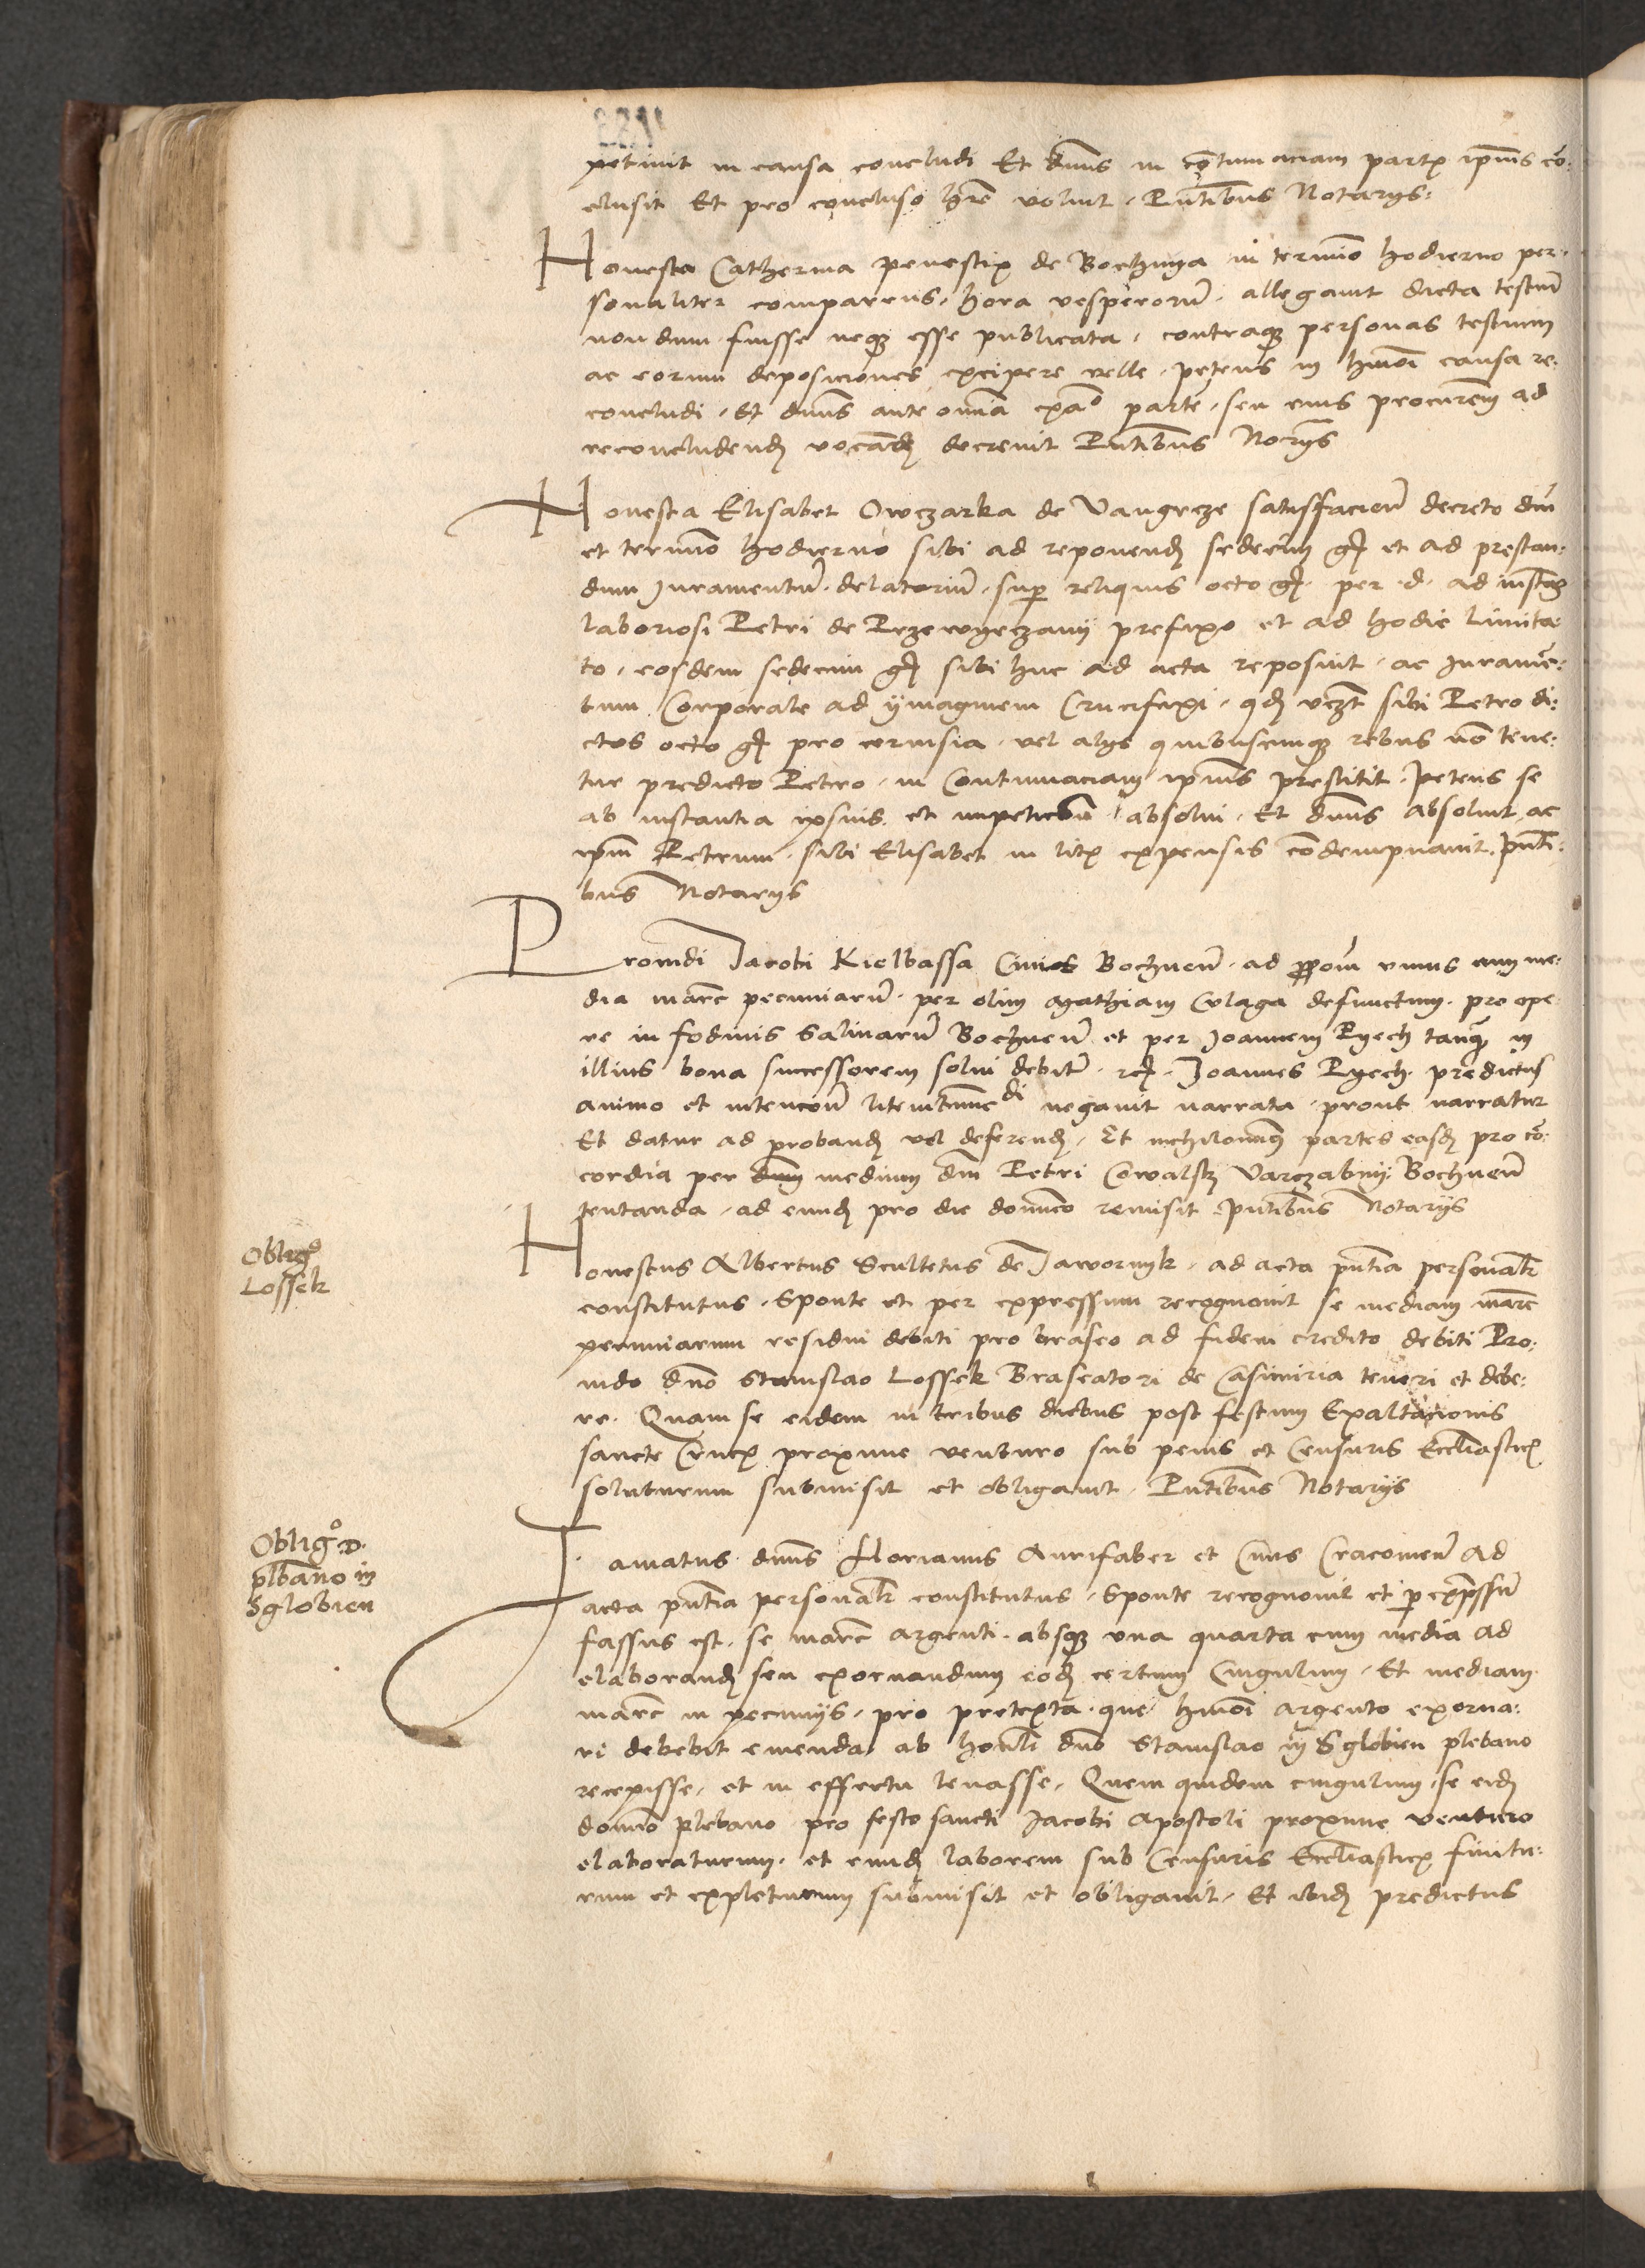 petiuit in causa concludi Et dnus in contumaciam partis ipius con:
clusit Et pro concluso hre voluit. Pntibus Notarys:
Honesta Catherina penestix de Bochnya in termino hodierno per:
sonaliter comparens, hora vesperorum, allegauit dicta testium
nondum fuisse neque esse publicata, contraque personas testium
ac eorum deposiciones excipere velle, petens in hmoi causa re:
concludi, Et dnus ante omnia exao parte, seu eius procurem ad
reconcludend vocand decreuit Pntibus Notarys
Honesta Elisabet Owczarka de Vangrcze satisfaciens decreto dni
et termino hodierno sibi ad reponend sedecim gr et ad prestan:
dum Juramentum delatorium, super reliquis octo gr. per d. ad instan
laboriosi Petri de Przewyeczany prefixo et ad hodie limita:
to, eosdem sedecim gr sibi huc ad acta reposuit, ac Juramen:
tum Corporale ad ymaginem Crucifixi, qd vczt sibi Petro di:
ctos octo gr pro ceruisia, vel alys quibuscunque rebus non tene:
tur predicto Petro, in Contumaciam ipius prestitit. Petens se
ab instantia ipsius et impeticione absolui, Et dnus absoluit, ac
ipm Petrum, sibi Elisabet in litis expensis condempnauit. Pnti:
bus Notarys
Prouidi Jacobi Kielbassa Ciuis Bochnen, ad propom vnius cum me:
dia marc pecuniarum, per olim Mathiam Culaga defunctum, pro ope:
re in fodinis Salinarum Bochnen et per Joannem Pyech tanquam in
illius bona successorem solui debitum rc. Joannes Pyech predictus
animo et intencone litem contestandi negauit narrata, prout narratur
Et datur ad proband vel deferend, Et nichilominus partes easd pro con:
cordia per dnm medium dni Petri Cowalsky Varczabny Bochnen
tentanda, ad eund pro die dominico remisit Pntibus Notarys
Obligo
Lossek
Honestus Albertus Scultetus de Jawornyk, ad acta pntia personalr
constitutus, Sponte et per expressum recognouit se mediam marc
pecuniarum residui debiti pro braseo ad fidem credito debiti Pro:
uido dno Stanislao Lossek Braseatori de Casimiria teneri et debe:
re. Quam se eidem in tribus diebus post festum Exaltacionis
sancte Crucis proxime venturo sub penis et Censuris Ecclasticis
soluturum submisit et obligauit, Pntibus Notarys
Obligo D.
plbano in
Sglobien
Famatus dnus Florianus Aurifaber et Ciuis Cracouien Ad
acta pntia personalr constitutus, Sponte recognouit et p expressum
fassus est, se marc argenti absque vna quarta cum media ad
elaborand seu exornandum eod certum Cingulum, Et mediam
marc in pecunys, pro pretexta que hmoi argento exorna:
ri debebit emenda, ab honbli dno Stanislao in Sglobien plebano
recepisse, et in effectu leuasse, Quem quidem cingulum, se eid
domino Plebano pro festo sancti Jacobi Apostoli proxime venturo
elaboraturum, et eund laborem sub Censuris Ecclasticis finitu:
rum et expleturum submisit et obligauit, Et ibid predictus